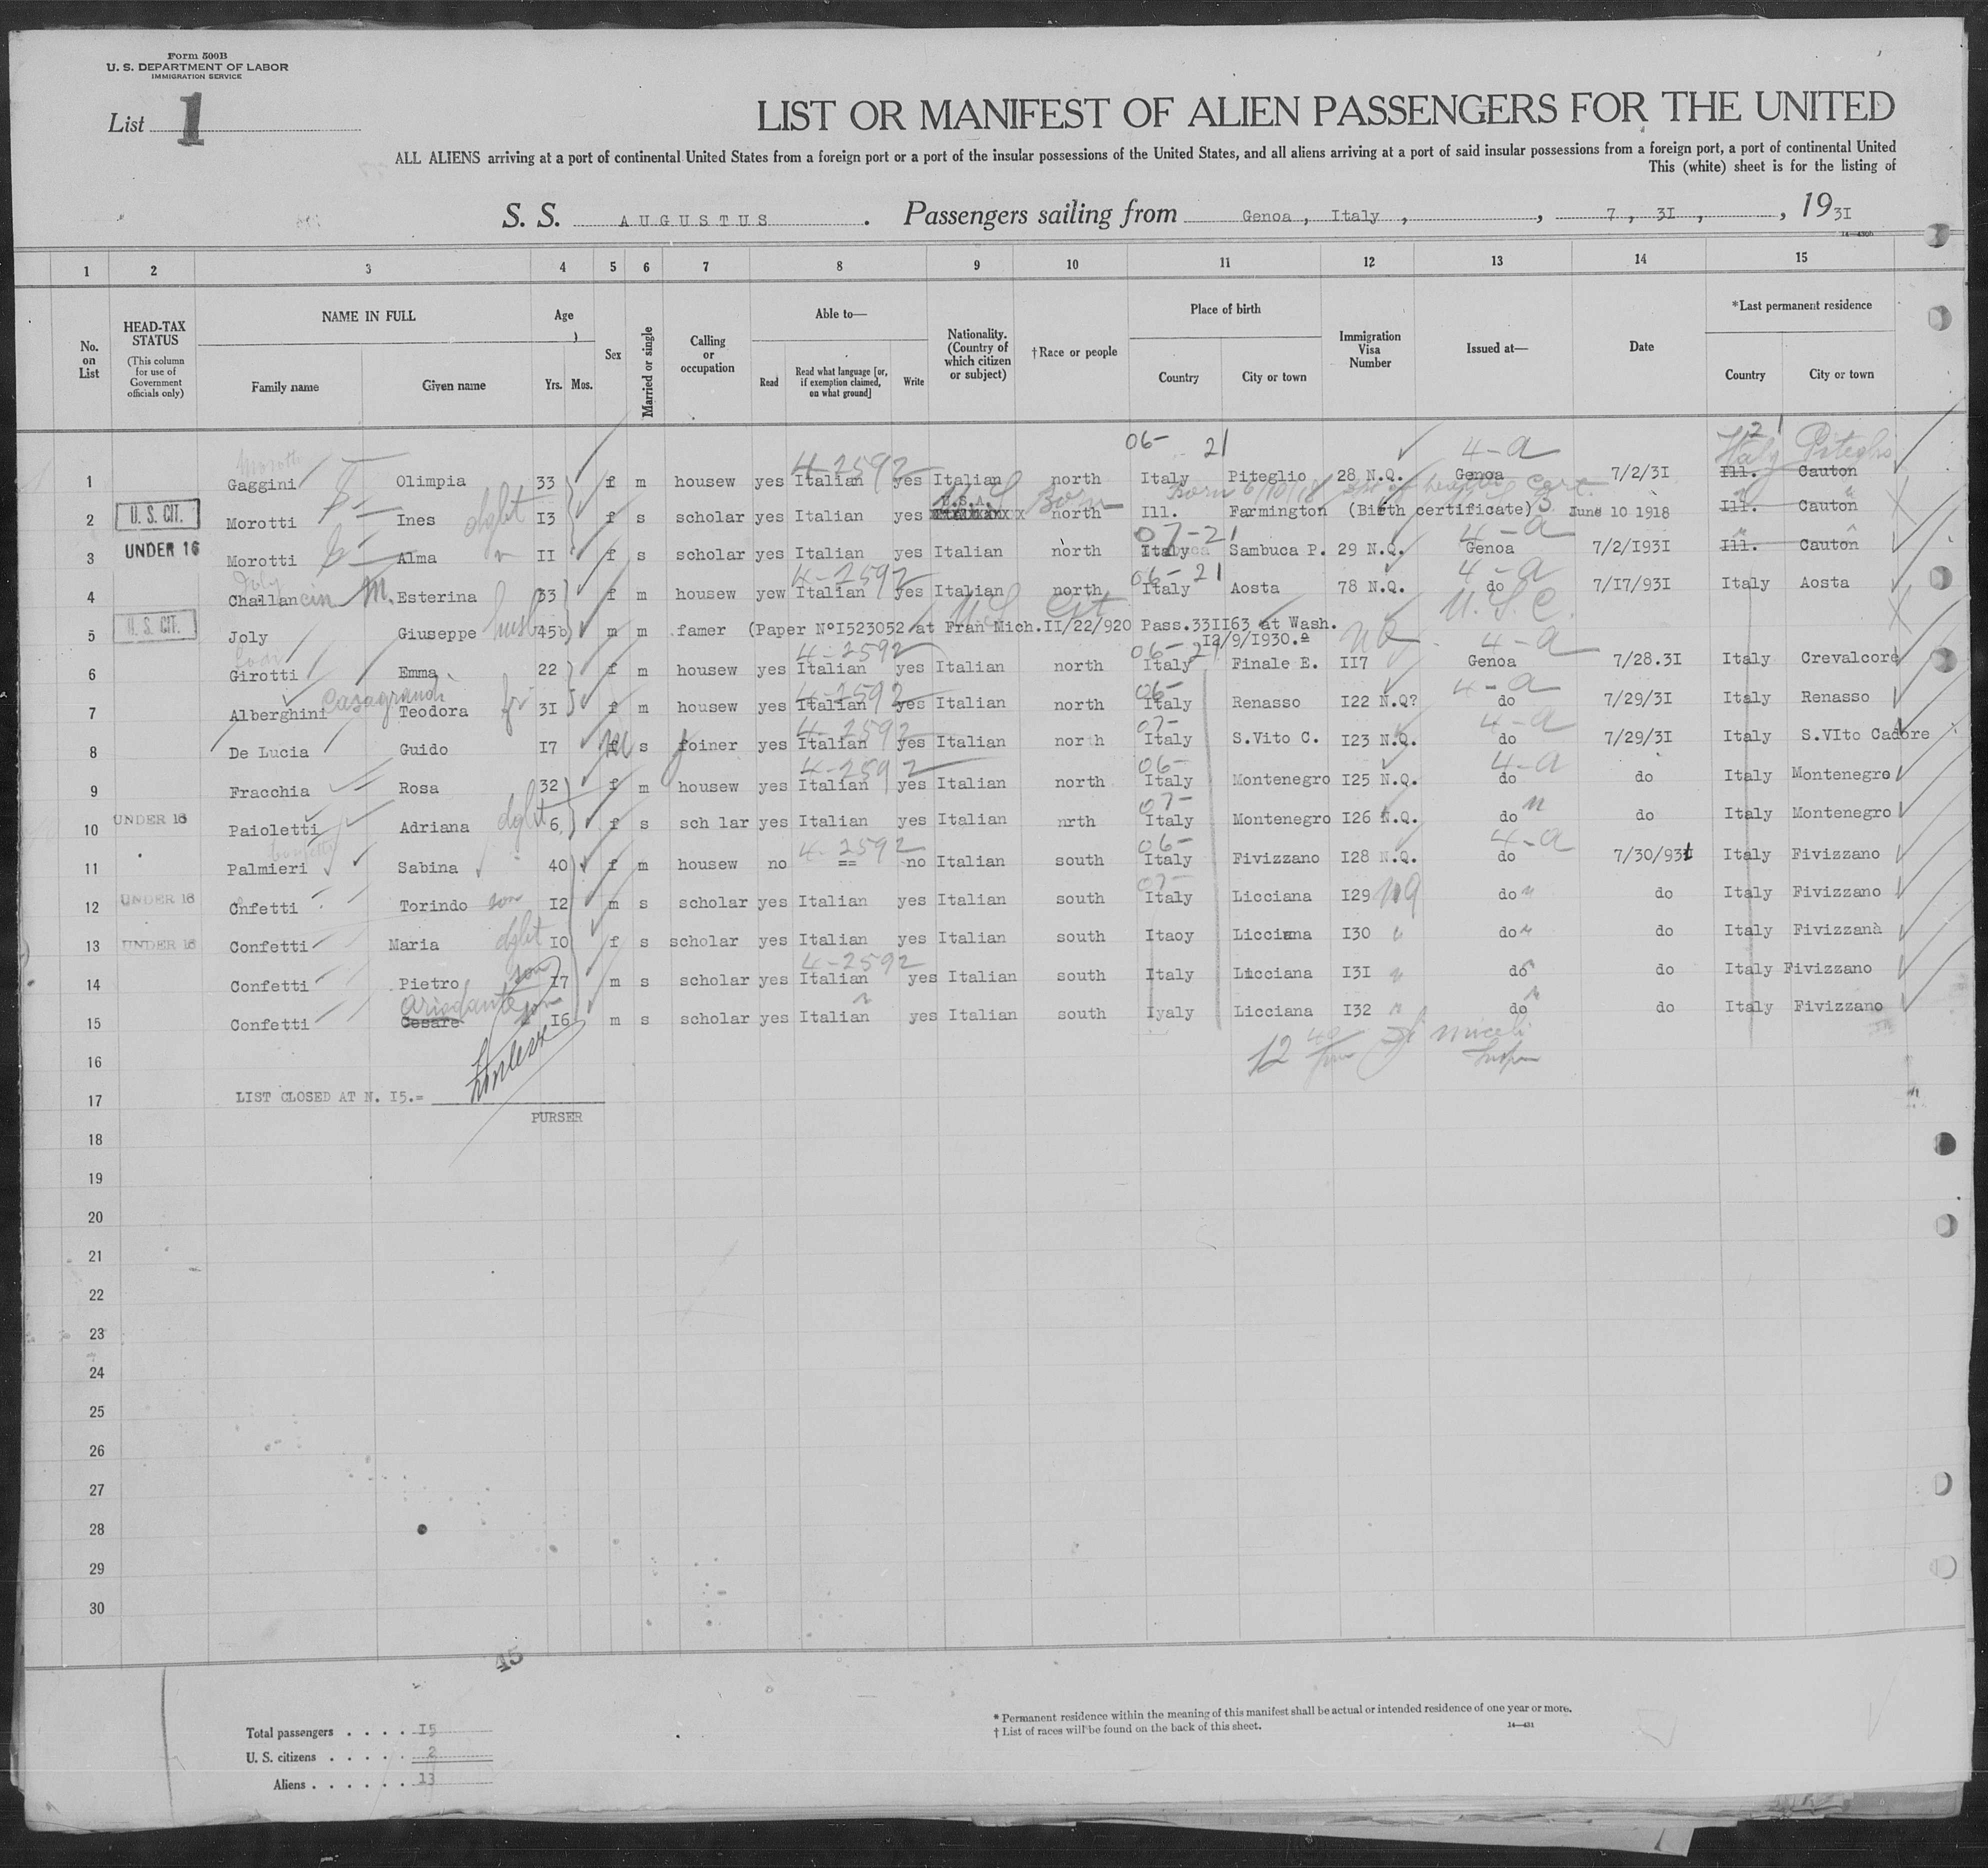 Form 500B
U. S. DEPARTMENT OF LABOR
IMMIGRATION SERVICE
List 1
LIST OR MANIFEST OF ALIEN PASSENGERS FOR THE UNITED
ALL ALIENS arriving at a port of continental United States from a foreign port or a port of the insular possessions of the United States, and all aliens arriving at a port of said insular possessions from a foreign port, a port of continental United
This (white) sheet is for the listing of
S. S. AUGUSTUS . Passengers sailing from Genoa , Italy , , 7 , 3I , , 19 3I
14—430b
1 2 3 4 5 6 7 8 9 10 11 12 13 14 15
No. on List
HEAD-TAX STATUS
(This column for use of Government officials only)
NAME IN FULL
Family name Given name
Age
Yrs. Mos.
Sex
Married or single
Calling or occupation
Able to—
Read
Read what language [or, if exemption claimed, on what ground]
Write
Nationality. (Country of which citizen or subject)
†Race or people
Place of birth
Country City or town
Immigration Visa Number
Issued at—
Date
*Last permanent residence
Country City or town
06- 21 4-a 21
Morotti 4-2592 Italy Piteglio
1 Gaggini Olimpia 33 f m housew yes Italian yes Italian north Italy Piteglio 28 N.Q. Genoa 7/2/3I Ill. Cauton
U.S.A. Born Born 6/10/18 cert.
2 U. S. CIT. Morotti Ines dght I3 f s scholar yes Italian yes north Ill. Farmington (Birth certificate) June 10 1918 Ill. Cauton
07-21 4-a
3 UNDER 16 Morotti Alma " II f s scholar yes Italian yes Italian north Italy Sambuca P. 29 N.Q. Genoa 7/2/I93I Ill. Cauton
Joly 4-2592 06-21 4-a
4 Challancin M. Esterina 33 f m housew yew Italian yes Italian north Italy Aosta 78 N.Q. do 7/I7/93I Italy Aosta
U.S. Cit U.S.C.
5 U. S. CIT. Joly Giuseppe husb 45 m m famer (Paper NºI523052 at Fran Mich.II/22/920 Pass.33II63 at Wash.
I2/9/I930.=
4-2592 06-21 4-a
6 Girotti Emma 22 f m housew yes Italian yes Italian north Italy Finale E. II7 NQ Genoa 7/28.3I Italy Crevalcore
Casagrandi 4-2592 06- 4-a
7 Alberghini Teodora 3I f m housew yes Italian yes Italian north Italy Renasso I22 N.Q? do 7/29/3I Italy Renasso
4-2592 07- 4-a
8 De Lucia Guido I7 m s joiner yes Italian yes Italian north Italy S.Vito C. I23 N.Q. do 7/29/3I Italy S.VIto Cadore
4-2592 06- 4-a
9 Fracchia Rosa 32 f m housew yes Italian yes Italian north Italy Montenegro I25 N.Q. do do Italy Montenegro
07-
10 UNDER 16 Paioletti Adriana dght 6 f s sch lar yes Italian yes Italian nrth Italy Montenegro I26 N.Q. do " do Italy Montenegro
Confetti 4-2592 06- 4-a
11 Palmieri Sabina 40 f m housew no == no Italian south Italy Fivizzano I28 N.Q. do 7/30/931 Italy Fivizzano
07-
12 UNDER 16 Cnfetti Torindo son I2 m s scholar yes Italian yes Italian south Italy Licciana I29 NQ do " do Italy Fivizzano
13 UNDER 16 Confetti Maria dght I0 f s scholar yes Italian yes Italian south Itaoy Licciana I30 " do " do Italy Fivizzanà
4-2592
14 Confetti Pietro son I7 m s scholar yes Italian yes Italian south Italy Licciana I3I " do " do Italy Fivizzano
Ariodante son "
15 Confetti Cesare I6 m s scholar yes Italian yes Italian south Iyaly Licciana I32 " do " do Italy Fivizzano
12 Miceli
16
17 LIST CLOSED AT N. I5.=
PURSER
18
19
20
21
22
23
24
25
26
27
28
29
30
45
Total passengers . . . . I5
U. S. citizens . . . . . 2
Aliens . . . . . . 13
* Permanent residence within the meaning of this manifest shall be actual or intended residence of one year or more.
† List of races will be found on the back of this sheet.
14—431